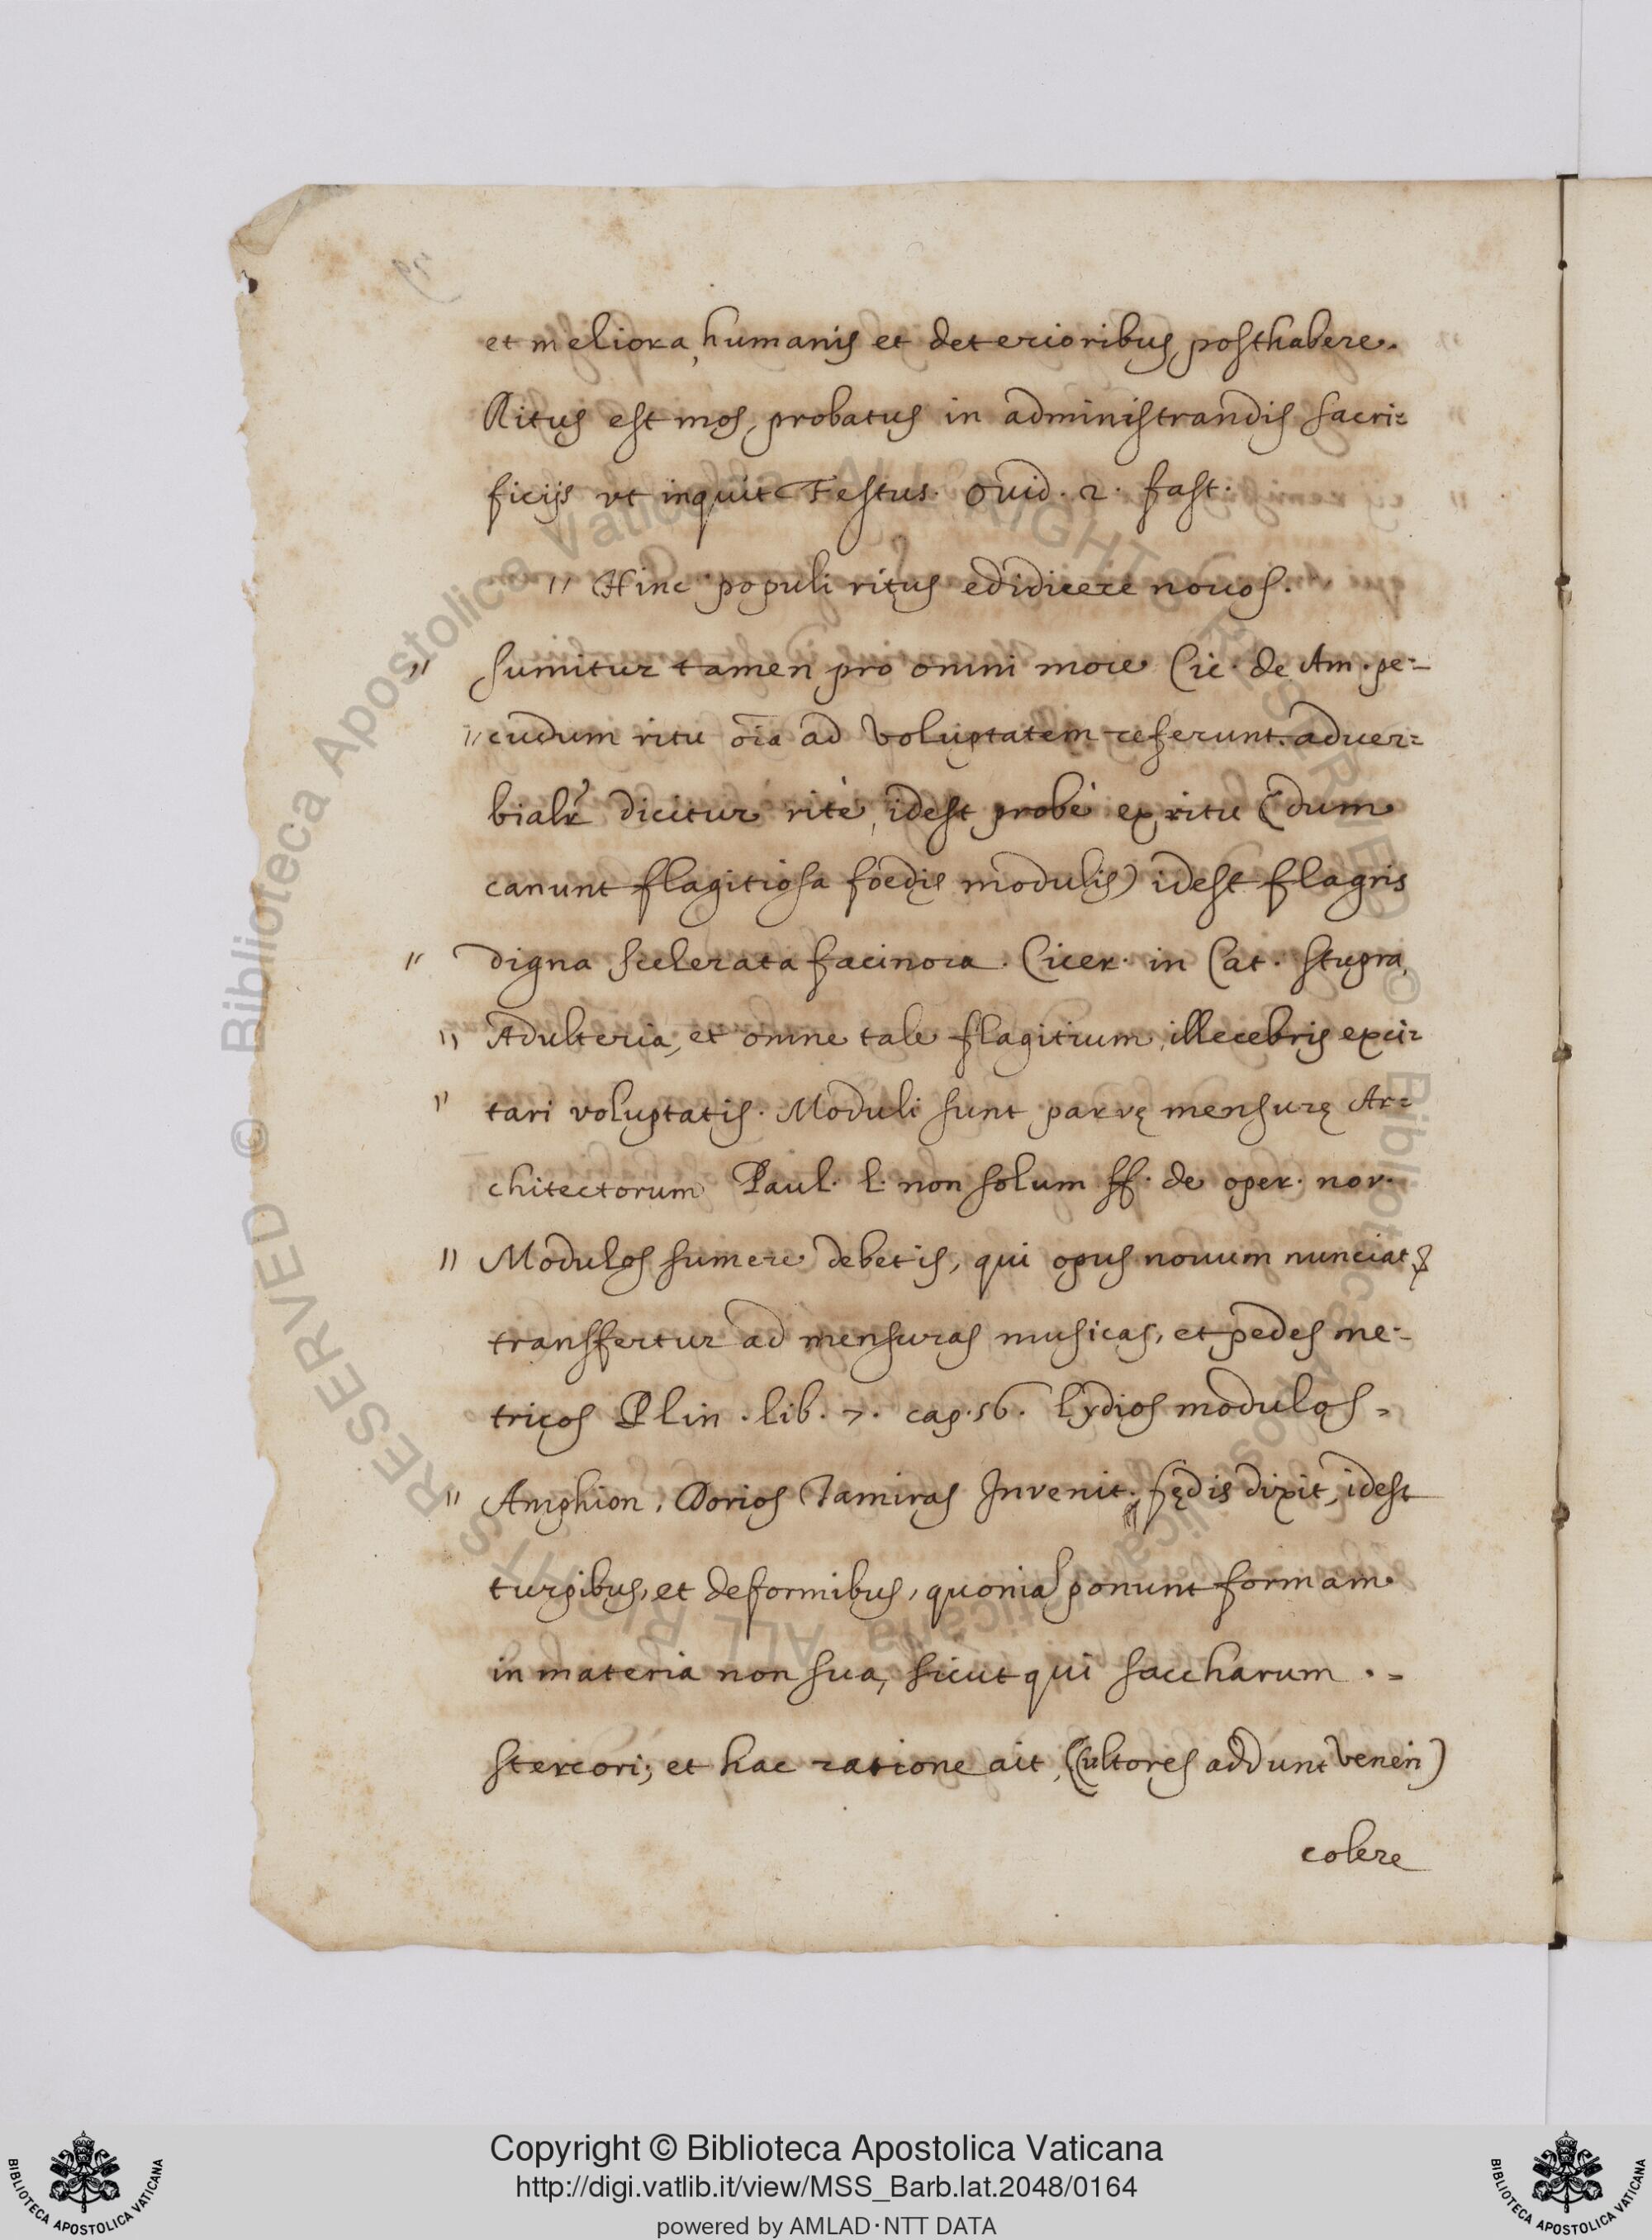 et meliora, humanis et deterioribus posthabere.
Ritus est mos, probatus in administrandis sacri=
ficijs vt inquit Festus. Ovid. 2. fast.
" Hinc populi ritus edidicere nouos.
" sumitur tamen pro omni more Cic. de Am. pe=
" cudum ritu oĩa ad voluptatem referunt. aduer=
bialr̃ dicitur ritè, idest probè ex ritu (dum
canunt flagitiosa foedis modulis) idest flagris
" digna scelerata facinora. Cicer. in Cat. stupra,
" Adulteria, et omne tale flagitium, illecebris exci=
" tari voluptatis. Moduli sunt parvę mensurę Ar=
chitectorum Paul. l. non solum ff. de oper. nov.
" Modulos sumere debetis, qui opus nouum nunciat,
transfertur ad mensuras musicas, et pedes me=
tricos Plin. lib. 7. cap. 56. Lydios modulos =
" Amphion, Dorios Tamiras Invenit. fędis dixit, idest
turpibus, et deformibus, quoniã ponunt formam
in materia non sua, sicut qui saccharum . =
stercori; et hac ratione ait (Cultores addunt veneri)
colere
Copyright © Biblioteca Apostolica Vaticana
http://digi.vatlib.it/view/MSS_Barb.lat.2048/0164
powered by AMLAD·NTT DATA
BIBLIOTECA APOSTOLICA VATICANA
BIBLIOTECA APOSTOLICA VATICANA